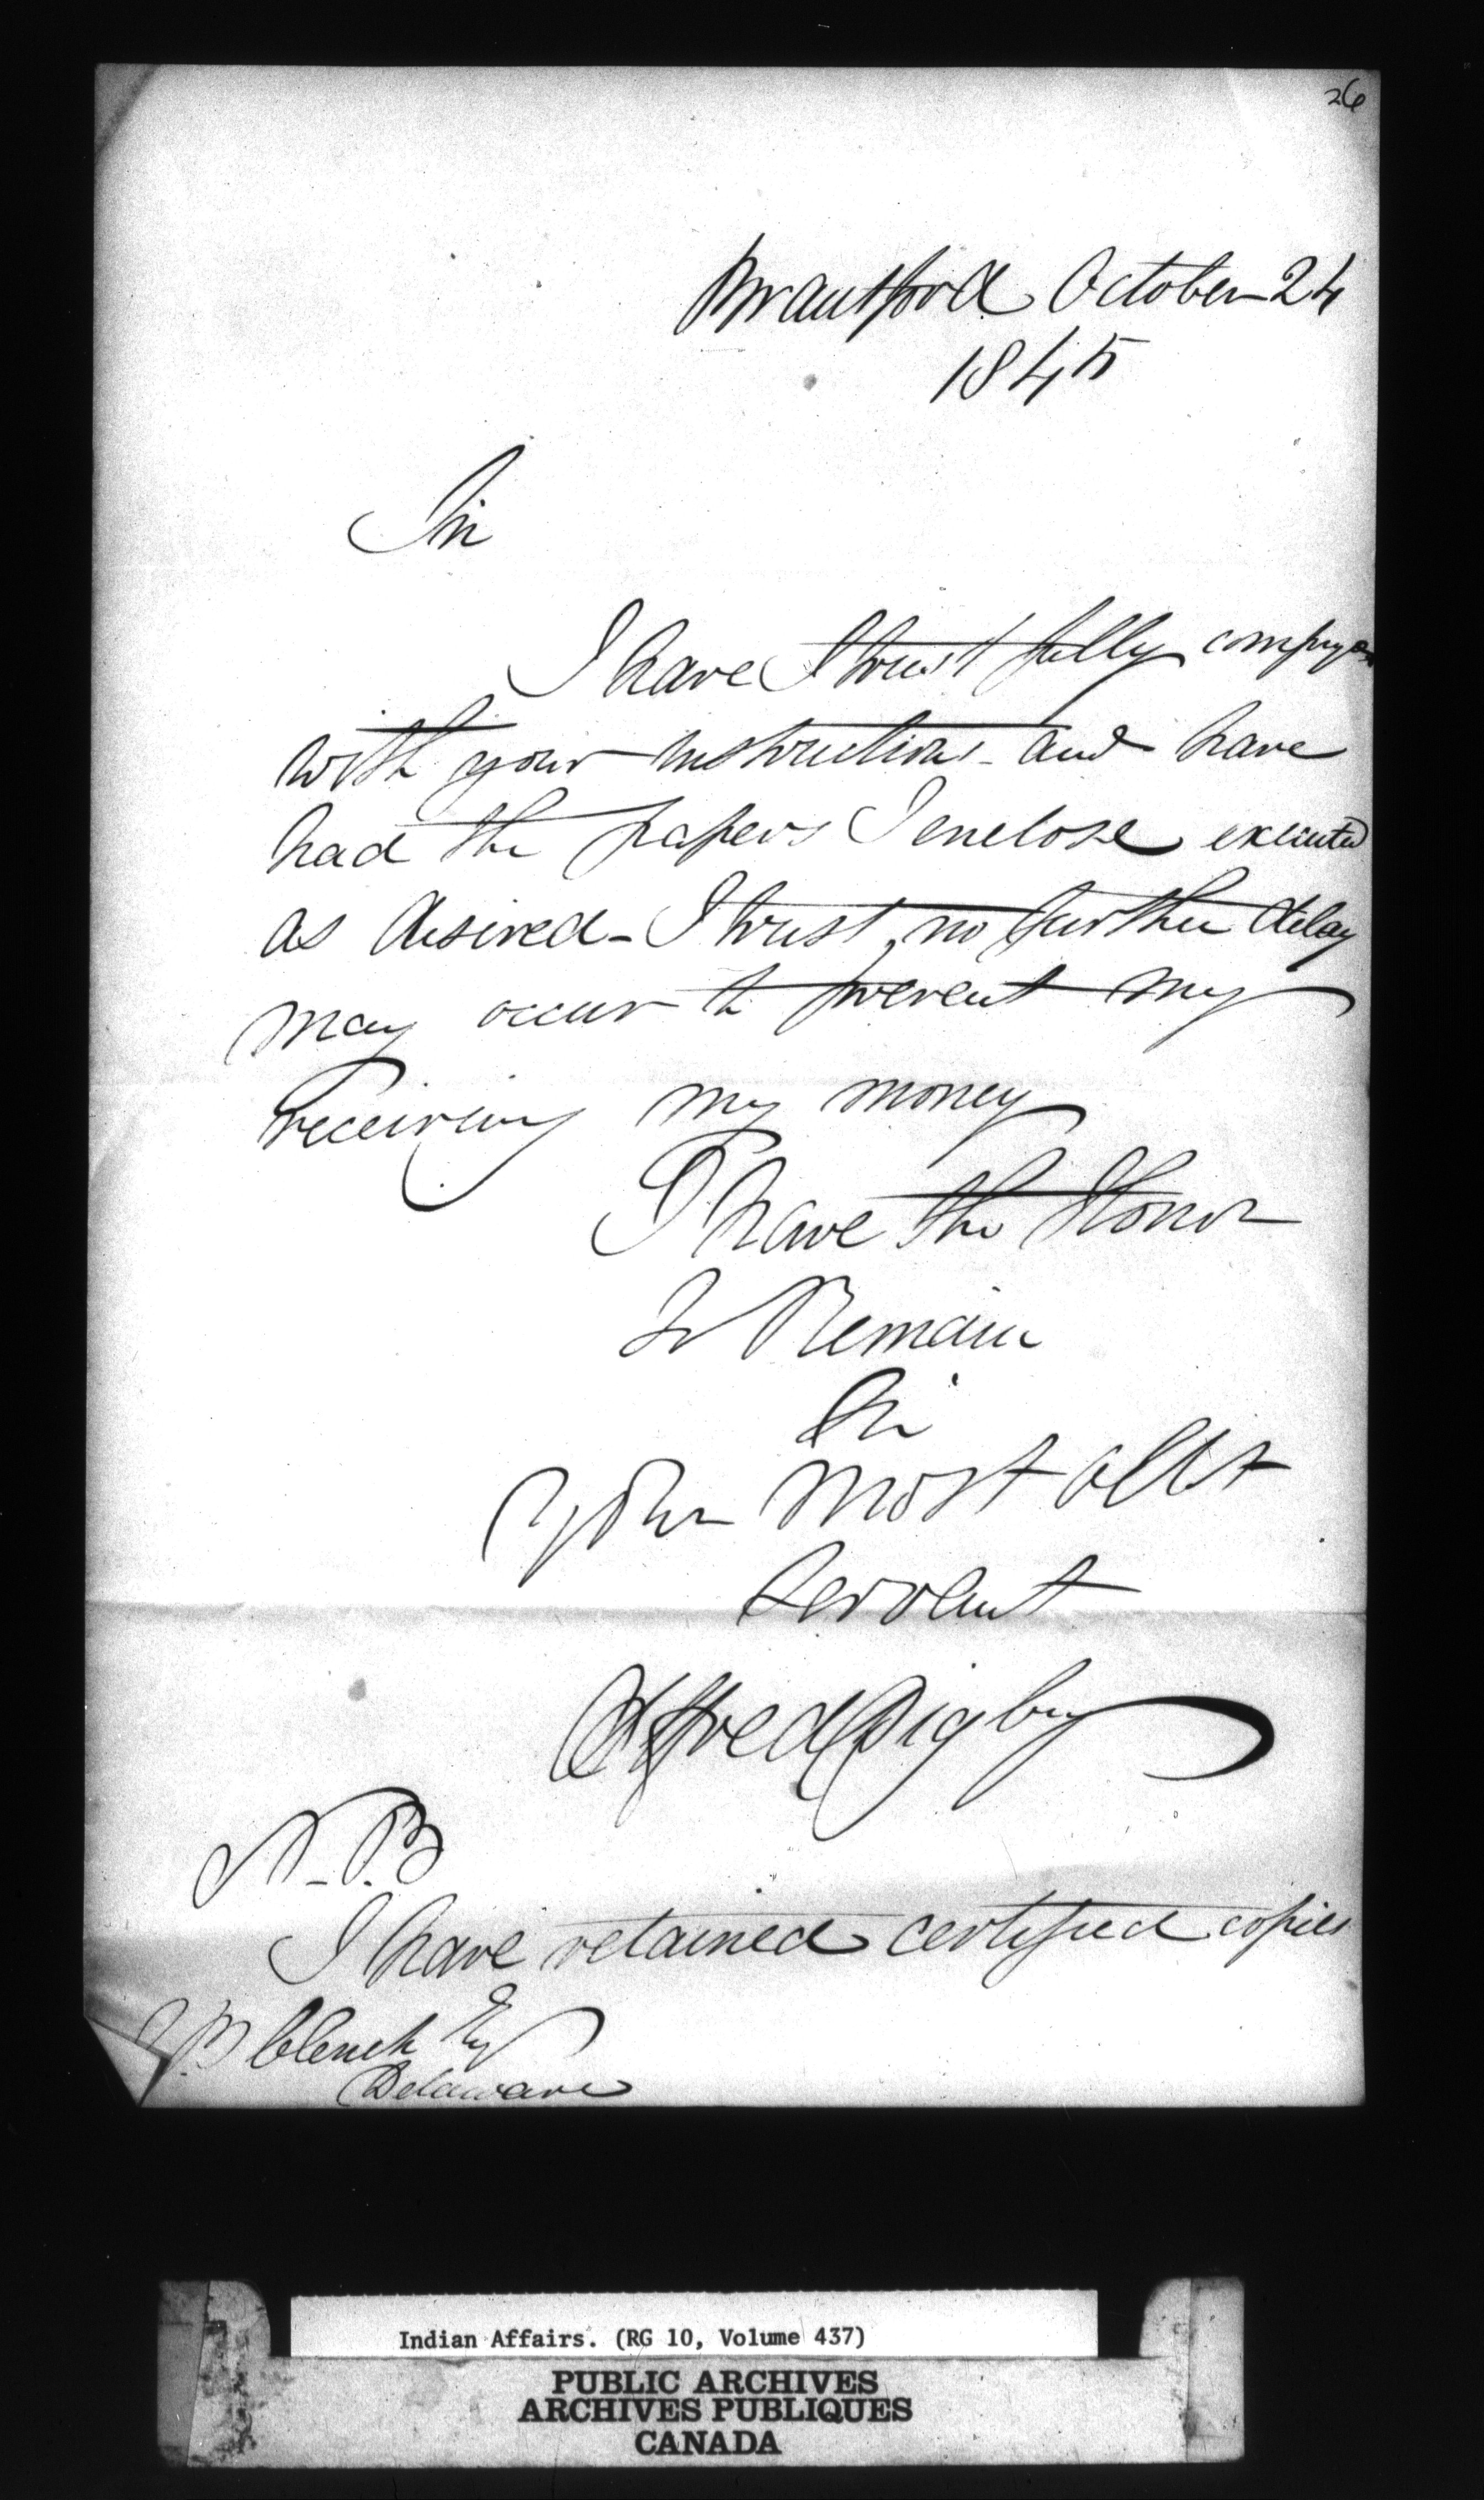 26
Brantford October 24
1845
Sir
I have I trust fully complyed
with your instructions - and have
had the papers I enclose executed
as desired - I trust no further delay
may occur to prevent my
receiving my money
I have the Honor
to Remain
Sir
Your most obt
Servant
Alfred Digby
N.B
I have retained certified copies
J B Clench Esq
Delaware
Indian Affairs. (RG 10, Volume 437)
PUBLIC ARCHIVES
ARCHIVES PUBLIQUES
CANADA